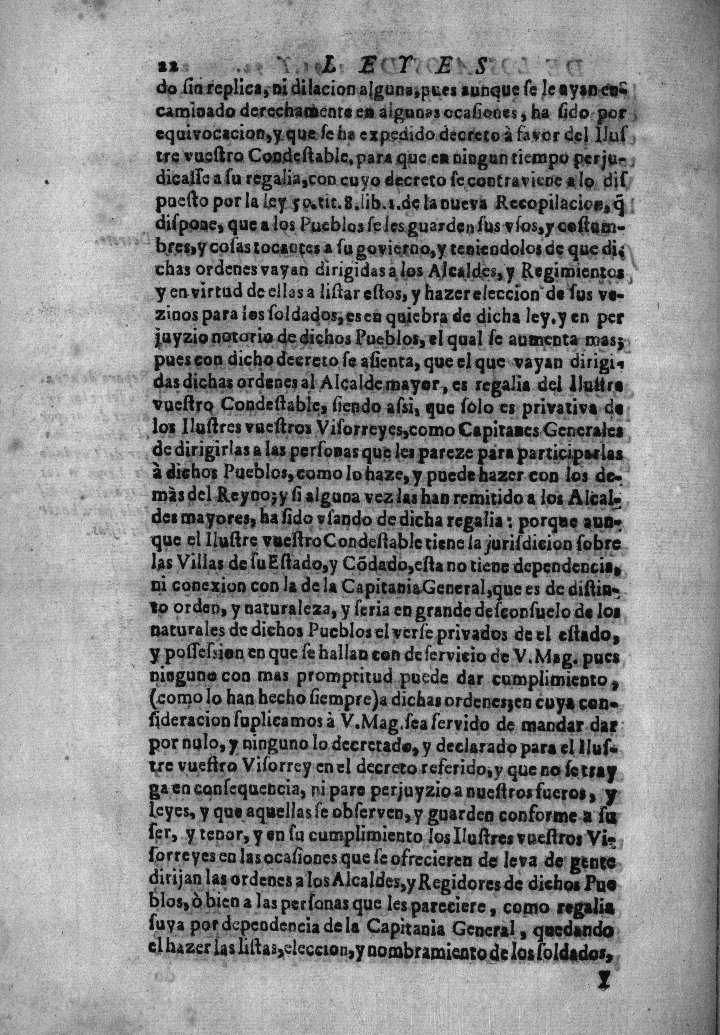 22 L E Y E S
do sin replica, ni dilacion alguna, pues aunque se le ayan en-
caminado derechamente en algunas ocasiones, ha sido por
equivocacion, y que se ha expedido decreto à favor del Ilus
tre vuestro Condestable, para que en ningun tiempo perju-
dicasse a su regalia, con cuyo decreto se contraviene a lo dis
puesto por la ley 50. tit. 8. lib. 1. de la nueva Recopilacion, q̃
dispone, que a los Pueblos se les guarden sus vsos, y costum-
bres, y cosas tocantes a su govierno, y teniendolos de que di-
chas ordenes vayan dirigidas a los Alcaldes, y Regimientos
y en virtud de ellas a listar estos, y hazer eleccion de sus ve-
zinos para los soldados, es en quiebra de dicha ley, y en per
juyzio notorio de dichos Pueblos, el qual se aumenta mas;
pues con dicho decreto se asienta, que el que vayan dirigi-
das dichas ordenes al Alcalde mayor, es regalia del Ilustre
vuestro Condestable, siendo assi, que solo es privativa de
los Ilustres vuestros Visorreyes, como Capitanes Generales
de dirigirlas a las personas que les pareze para participarlas
à dichos Pueblos, como lo haze, y puede hazer con los de-
màs del Reyno; y si alguna vez las han remitido a los Alcal-
des mayores, ha sido vsando de dicha regalia: porque aun-
que el Ilustre vuestro Condestable tiene la jurisdicion sobre
las Villas de su Estado, y Cõdado, esta no tiene dependencia,
ni conexion con la de la Capitania General, que es de distin-
to orden, y naturaleza, y seria en grande desconsuelo de los
naturales de dichos Pueblos el verse privados de el estado,
y possession en que se hallan con deservicio de V. Mag. pues
ninguno con mas promptitud puede dar cumplimiento,
(como lo han hecho siempre) a dichas ordenes; en cuya con-
sideracion suplicamos à V. Mag. sea servido de mandar dar
por nulo, y ninguno lo decretado, y declarado para el Ilus-
tre vuestro Visorrey en el decreto referido, y que no se tray
ga en consequencia, ni pare perjuyzio a nuestros fueros, y
leyes, y que aquellas se observen, y guarden conforme a su
ser, y tenor, y en su cumplimiento los Ilustres vuestros Vi-
sorreyes en las ocasiones que se ofrecieren de leva de gente
dirijan las ordenes a los Alcaldes, y Regidores de dichos Pue
blos, ò bien a las personas que les pareciere, como regalia
suya por dependencia de la Capitania General, quedando
el hazer las listas, eleccion, y nombramiento de los soldados,
Y